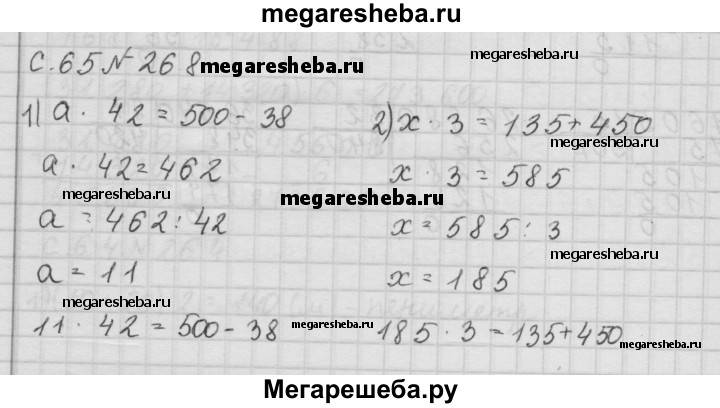 megaresheba.ru
С.65 № 268 megaresheba.ru
megaresheba.ru
1) a · 42 = 500 - 38
2) x · 3 = 135 + 450
a · 42 = 462
x · 3 = 585
megaresheba.ru
megaresheba.ru
a = 462 : 42
x = 585 : 3
megaresheba.ru
a = 11
x = 185
megaresheba.ru
megaresheba.ru
11 · 42 = 500 - 38
megaresheba.ru
185 · 3 = 135 + 450
megaresheba.ru
Мегарешеба.ру